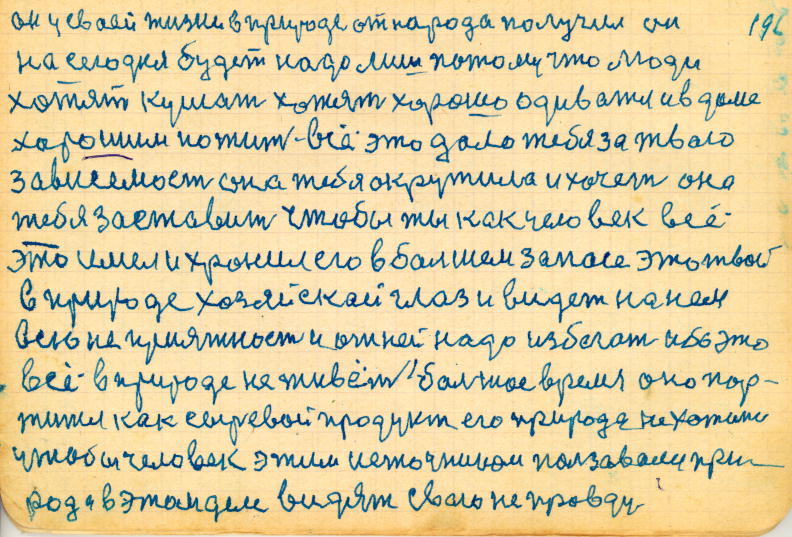 он у своей жизни в природе от народа получил он 196
на сегодня будет надо лиш потому что люди
хотят кушат хотят хорошо одиватся и в доме
хорошим пожит всё это дало тебя за твого
зависемост она тебя окружила и хочет она
тебя заставит чтобы ты как человек всё
это имел и хронил его в болшем запасе это твой
в природе хозяйскай глаз и видет на нем
всю не приятност и от ней надо избегат ибо это
всё в природе не живёт болшое время оно пор-
тится как сыревой продукт его природа не хотит
чтобы человек этим источником ползавался при-
рода в этом деле видят свого не провду